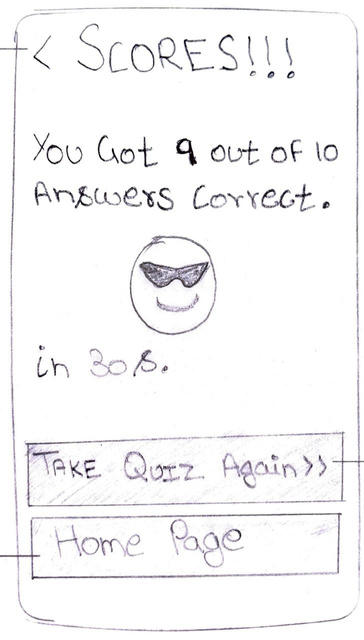 < SCORES!!!
You Got 9 out of 10
Answers Correct.
in 30s.
TAKE QUIZ Again>>
Home Page